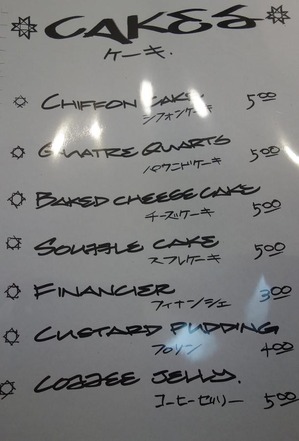 CAKES
ケーキ.
CHIFFON CAKE 5.00
シフォンケーキ
QUATRE QUARTS 5.00
パウンドケーキ
BAKED CHEESE CAKE
チーズケーキ 5.00
SOUFFLE CAKE 5.00
スフレケーキ
FINANCIER 3.00
フィナンシェ
CUSTARD PUDDING
プリン 4.00
COFFEE JELLY.
コーヒーゼリー 5.00